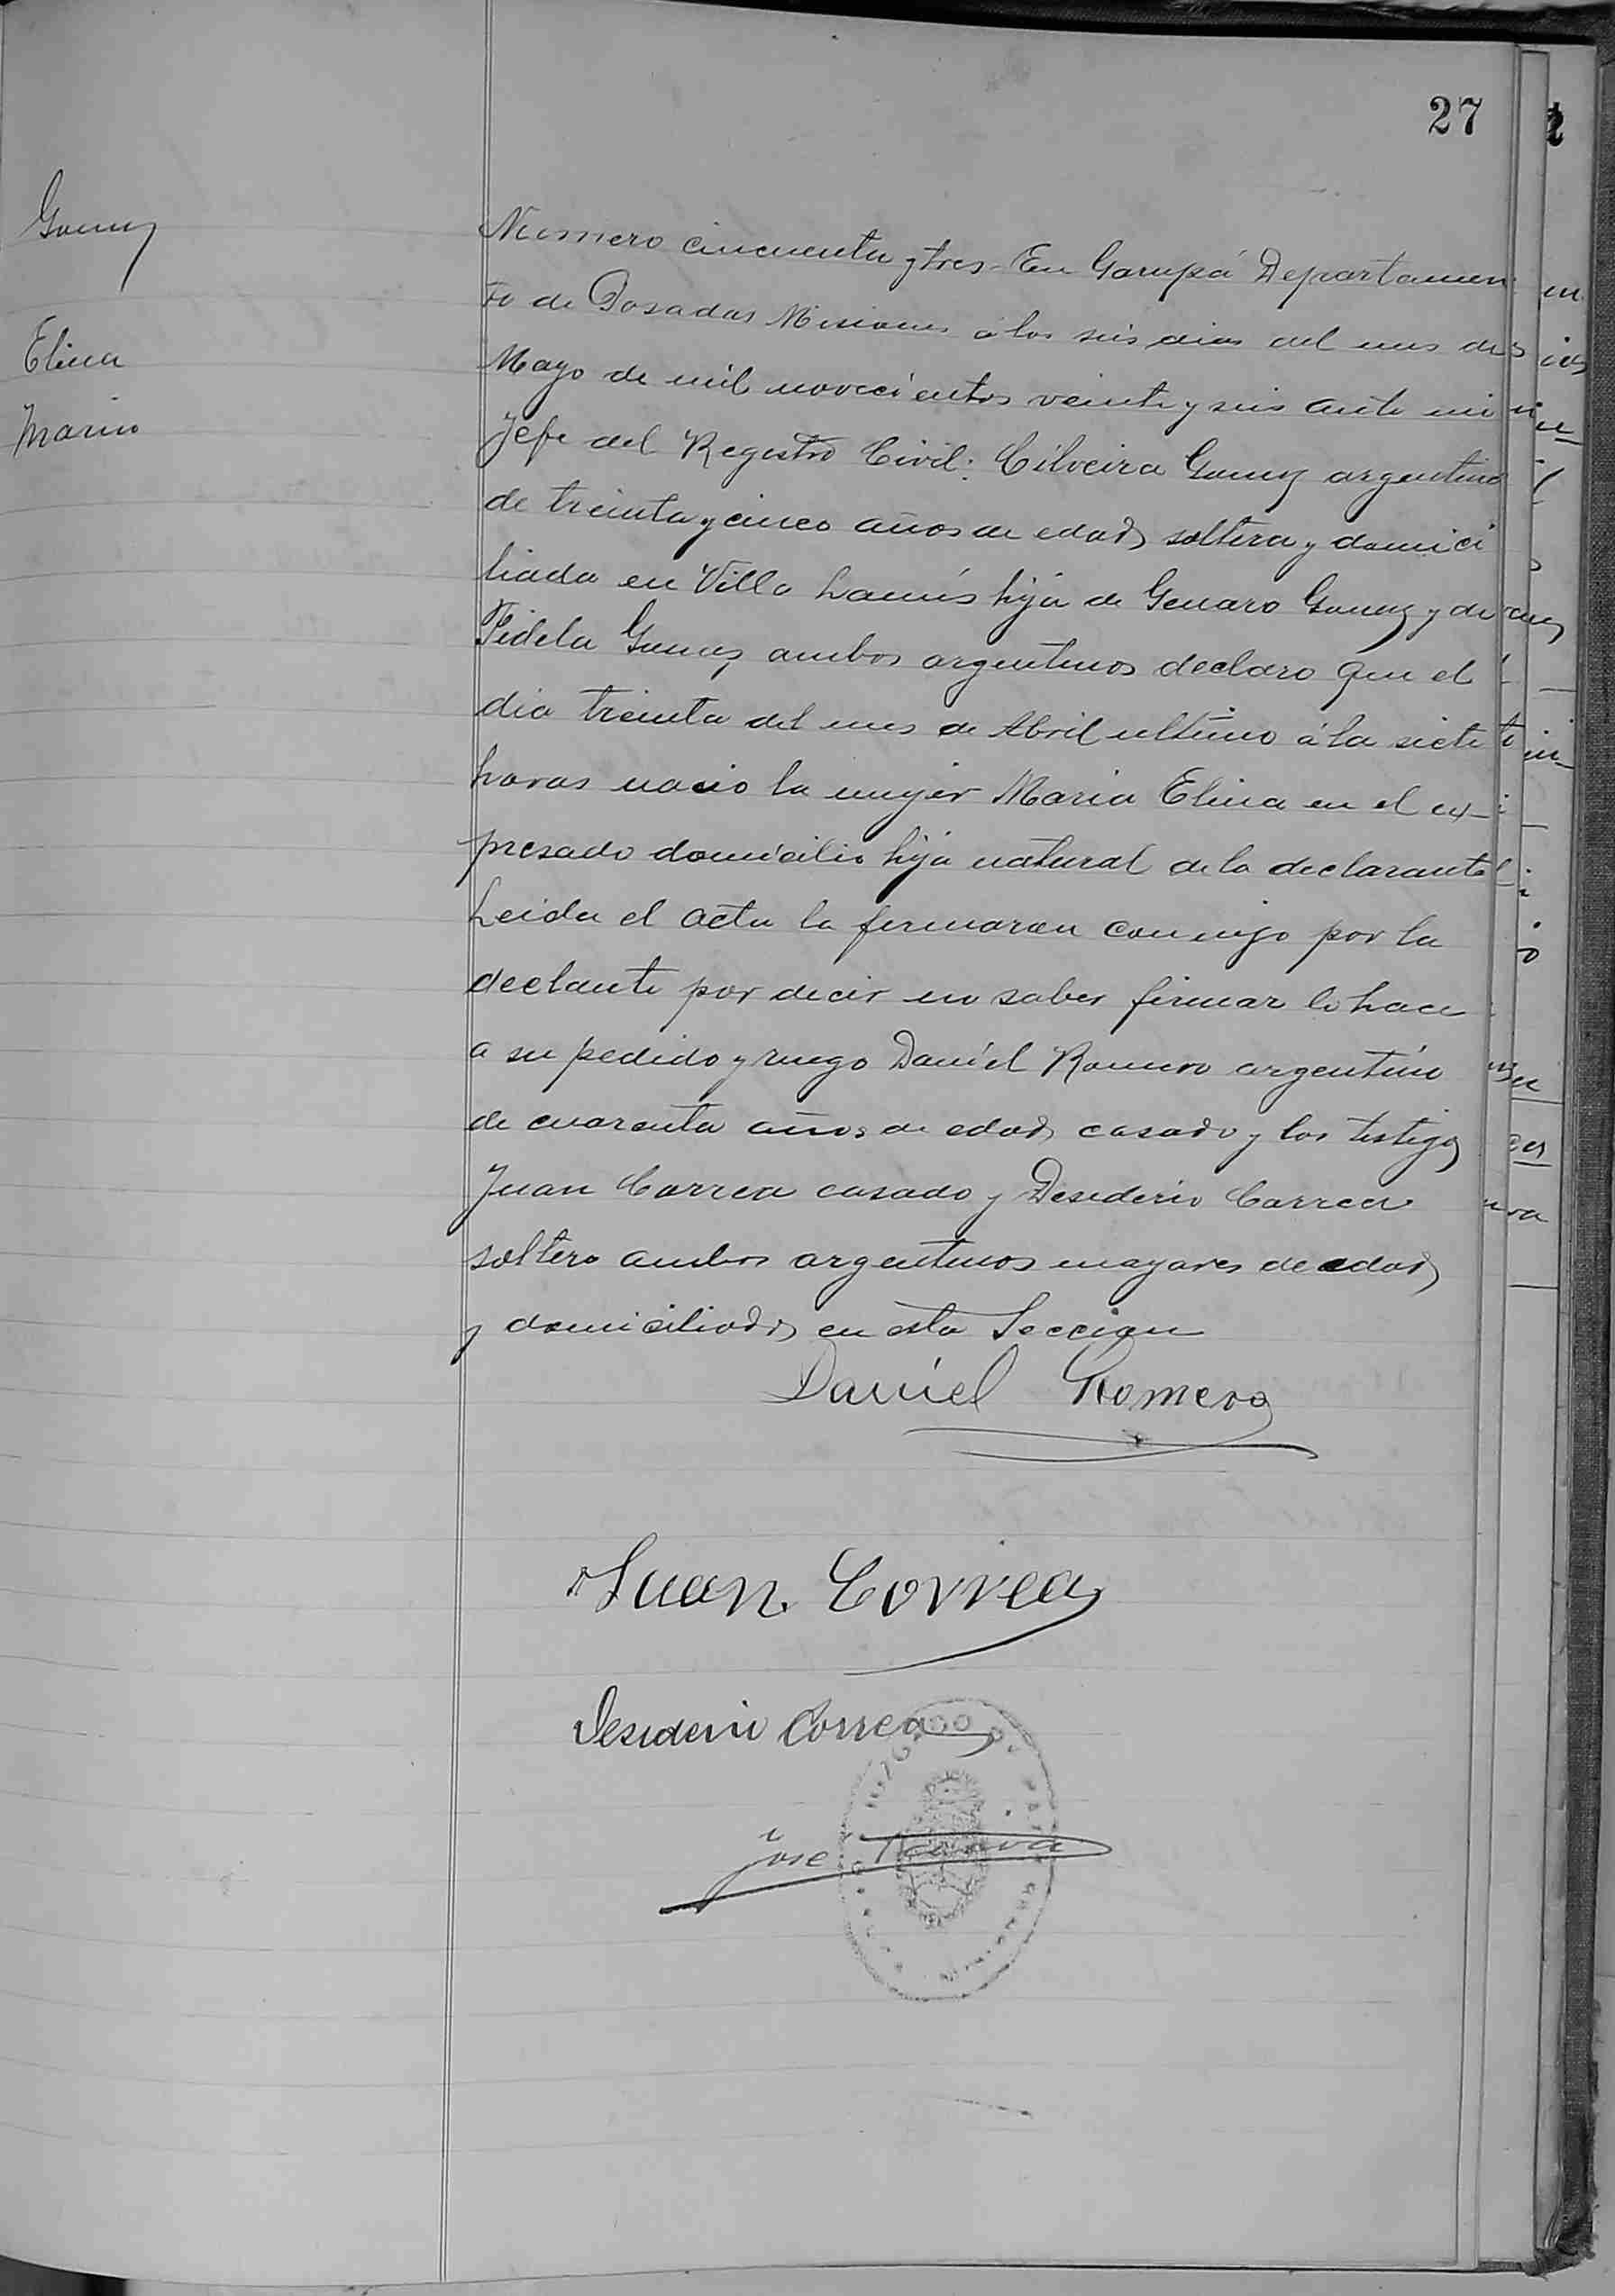 27
Gomez
Elina
Maria
Numero cincuenta y tres - En Garupá Departamen
to de Posadas Misiones á los seis dias del mes de
Mayo de mil novecientos veinte y seis ante mi
Jefe del Registro Civil: Cilveira Gomez argentina
de treinta y cinco años de edad soltera y domici
liada en Villa Lanús hija de Genaro Gomez y de
Fidela Gomez ambos argentinos declaro que el
dia treinta del mes de Abril ultimo á la siete
horas nacio la mujer Maria Elina en el ex-
presado domicilio hija natural de la declarante
Leida el acta la firmaron conmigo por la
declante por decir no saber firmar lo hace
a su pedido y ruego Daniel Romero argentino
de cuarenta años de edad casado y los testigos
Juan Correa casado y Desiderio Correa
soltero ambos argentinos mayores de edad
y domiciliados en esta Seccion
Daniel Romero
Juan Correa
Desiderio Correa
José